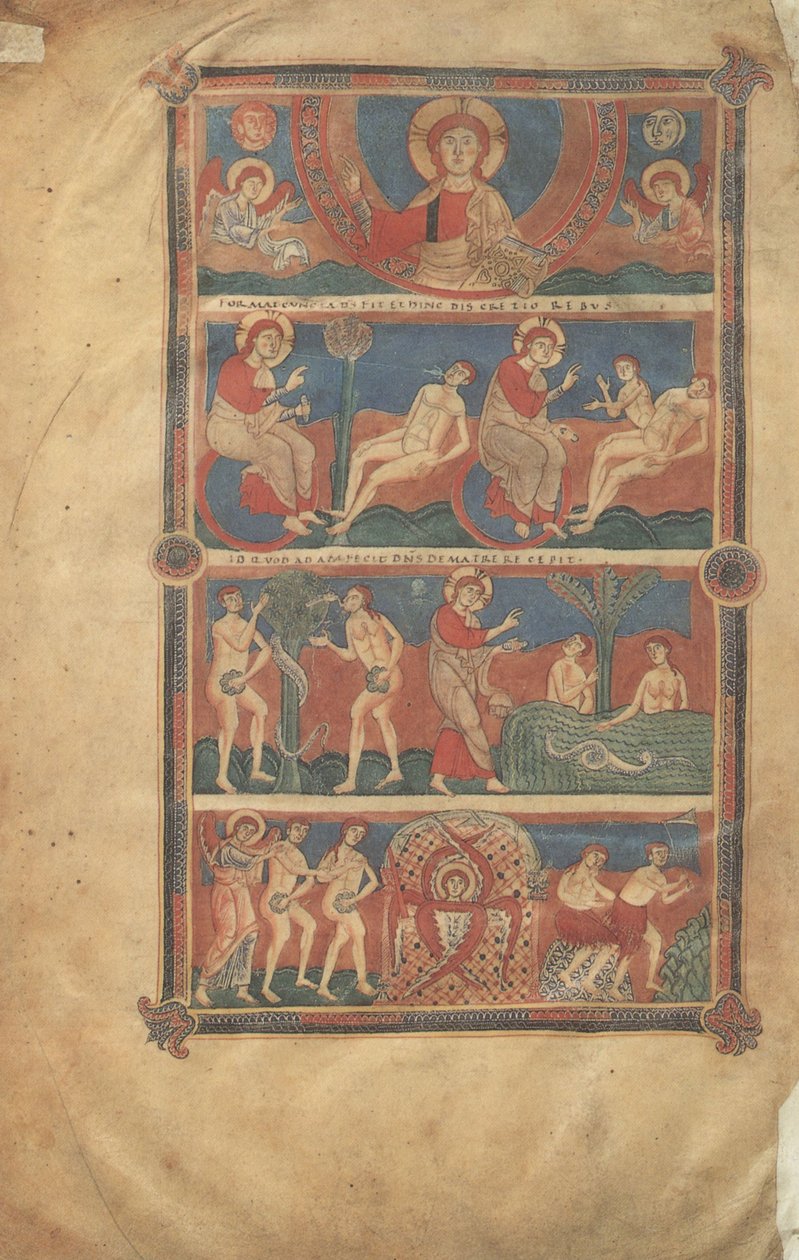 FORMAT CUNCTA DS FIT ET HINC DISCRETIO REBUS
ID QVOD ADAM FECIT DN̄S DE MATRE RECEPIT·